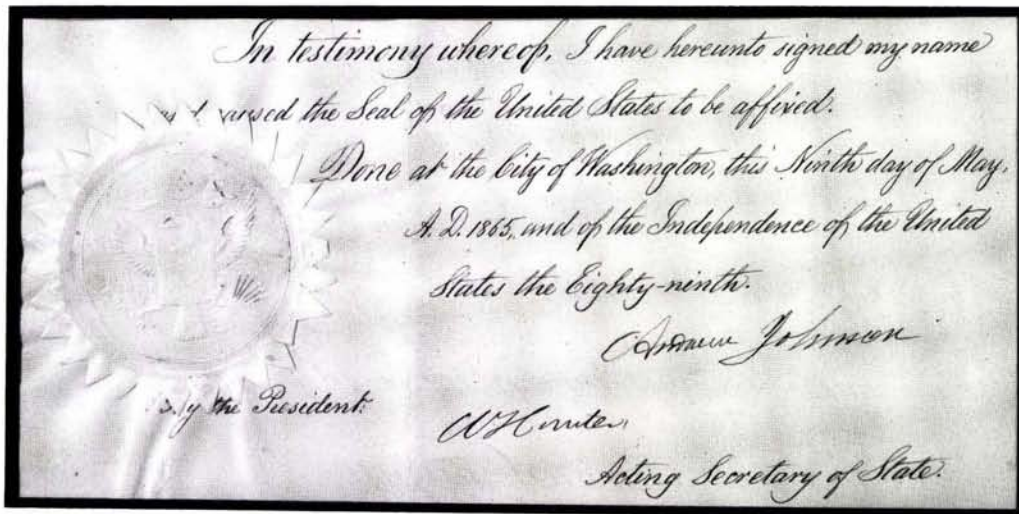 In testimony whereof, I have hereunto signed my name
caused the Seal of the United States to be affixed.
Done at the City of Washington, this Ninth day of May,
A. D. 1865, and of the Independence of the United
States the Eighty-ninth.
Andrew Johnson
By the President:
W Hunter,
Acting Secretary of State.